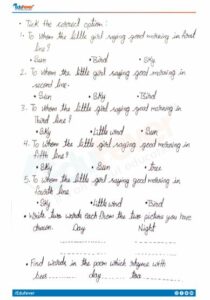 Edufever
• Tick the correct option:
1. To whom the little girl saying good morning in third line?
• Sun • Bird • Sky
2. To whom the little girl saying good morning in second line.
• Sun • Sky • Bird
3. To whom the little girl saying good morning in Third line?
• Sky • Little wind • Sun
4. To whom the little girl saying good morning in fifth line?
• Sky • Sun • tree
5. To whom the little girl saying good morning in fourth line
• Sky • Little wind • Bird
• Write two words each from the two picture you have
chosen. Day Night
• Find words in the poem which rhyme with
day